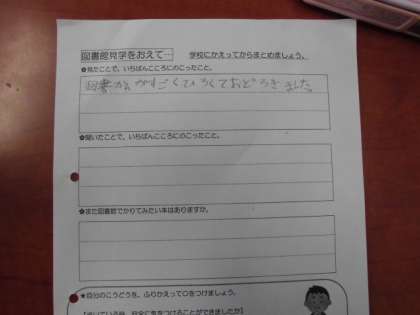 図書館見学をおえて… 学校にかえってからまとめましょう。
✿見たことで、いちばんこころにのこったこと。
図書かんがすごくひろくておどろきました。
✿聞いたことで、いちばんこころにのこったこと。
✿また図書館でかりてみたい本はありますか。
★自分のこうどうを、ふりかえって○をつけましょう。
【歩いている時、安全に気をつけることができましたか】